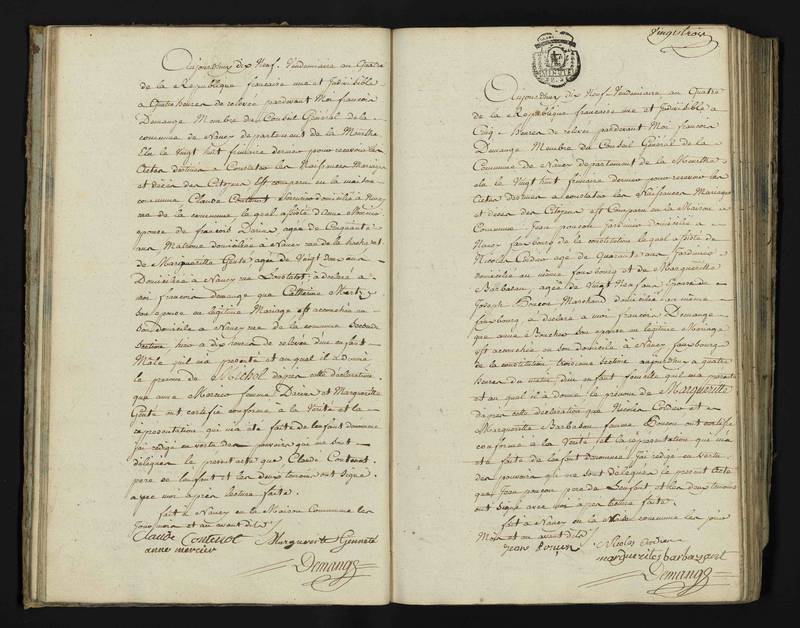 Aujourdhuy dix Neuf Vendemiaire an Quatre
de la République francaise une et Indivisible
a Quatre heures de relevée pardevant Moi francois
Demange Membre du Conseil Général de la
commune de Nancy departement de la Meurthe
Elu le Vingt huit frimaire dernier pour recevoir les
Actes destinés a Constater les Naissances Mariages
et deces des Citoyens Est comparu en la maison
commune Claude Contenot domicilié a Nancy
rue de la commune lequel assisté d'anne Mercier
epouse de francois Darius agée de Cinquante
ans Matrone domiciliée a Nancy rue de la hache et
de Marguerite Genté agée de Vingt deux ans
Domiciliée a Nancy rue Loustalot, a déclaré a
moi francois demange que Catherine Martz
son epouse en légitime Mariage est accouchée en
son domicile a Nancy rue de la commune Seconde
Section hier a dix heures de relevée d'un enfant
Mâle qu'il m'a presenté et au quel il a donné
le prenom de Michel daprès cette déclaration
que anne Mercier femme Darius et Marguerite
Genté ont certifié conforme a la Verité et la
représentation qui m'a été faite de l'enfant denommé
j'ai rédigé en vertu des pouvoirs qui me sont
délégués le présent acte que Claude Contenot
pere de l'enfant et les deux témoins ont signé
avec moi après lecture faite.
fait a Nancy en la Maison Commune les
jour, mois et an avant dits
Claude Contenot Marguerite Genneté
anne mercier
Demange
Vingt trois
Aujourdhuy dix Neuf Vendemiaire an Quatre
de la République francaise une et Indivisible a
Cinq heures de relevée pardevant Moi francois
Demange Membre du Conseil Général de la
Commune de Nancy departement de la Meurthe
elu le Vingt huit frimaire dernier pour recevoir les
Actes destinés a constater les Naissances Mariages
et deces des Citoyens est Comparu en la Maison
Commune Jean pouçon Jardinier domicilié a
Nancy fauxbourg de la constitution lequel assisté de
Nicolas Cordier agé de Quarante ans Jardinier
domicilié au même fauxbourg et de Marguerite
Barbasau, agée de Vingt Neuf ans Epouse de
Joseph Marchand domicilié au même
fauxbourg a déclaré a moi francois Demange
que anne son epouse en légitime Mariage
est accouchée en son domicile a Nancy fauxbourg
de la constitution, troisieme Section aujourdhuy a quatre
heures du matin d'un enfant femelle qu'il m'a presenté
et au quel il a donné le prénom de Marguerite
daprès cette déclaration que Nicolas Cordier et
Marguerite Barbasau femme ont certifié
conforme a la Verité et la représentation qui m'a
été faite de l'enfant denommé, j'ai rédigé en vertu
des pouvoirs qui me sont délégués le présent Acte
que Jean pouçon pere de l'enfant et les deux témoins
ont signé avec moi après lecture faite.
fait a Nancy en la Maison commune les jour
Mois et an avant dits
Nicolas Cordier
marguerite barbazant
Demange